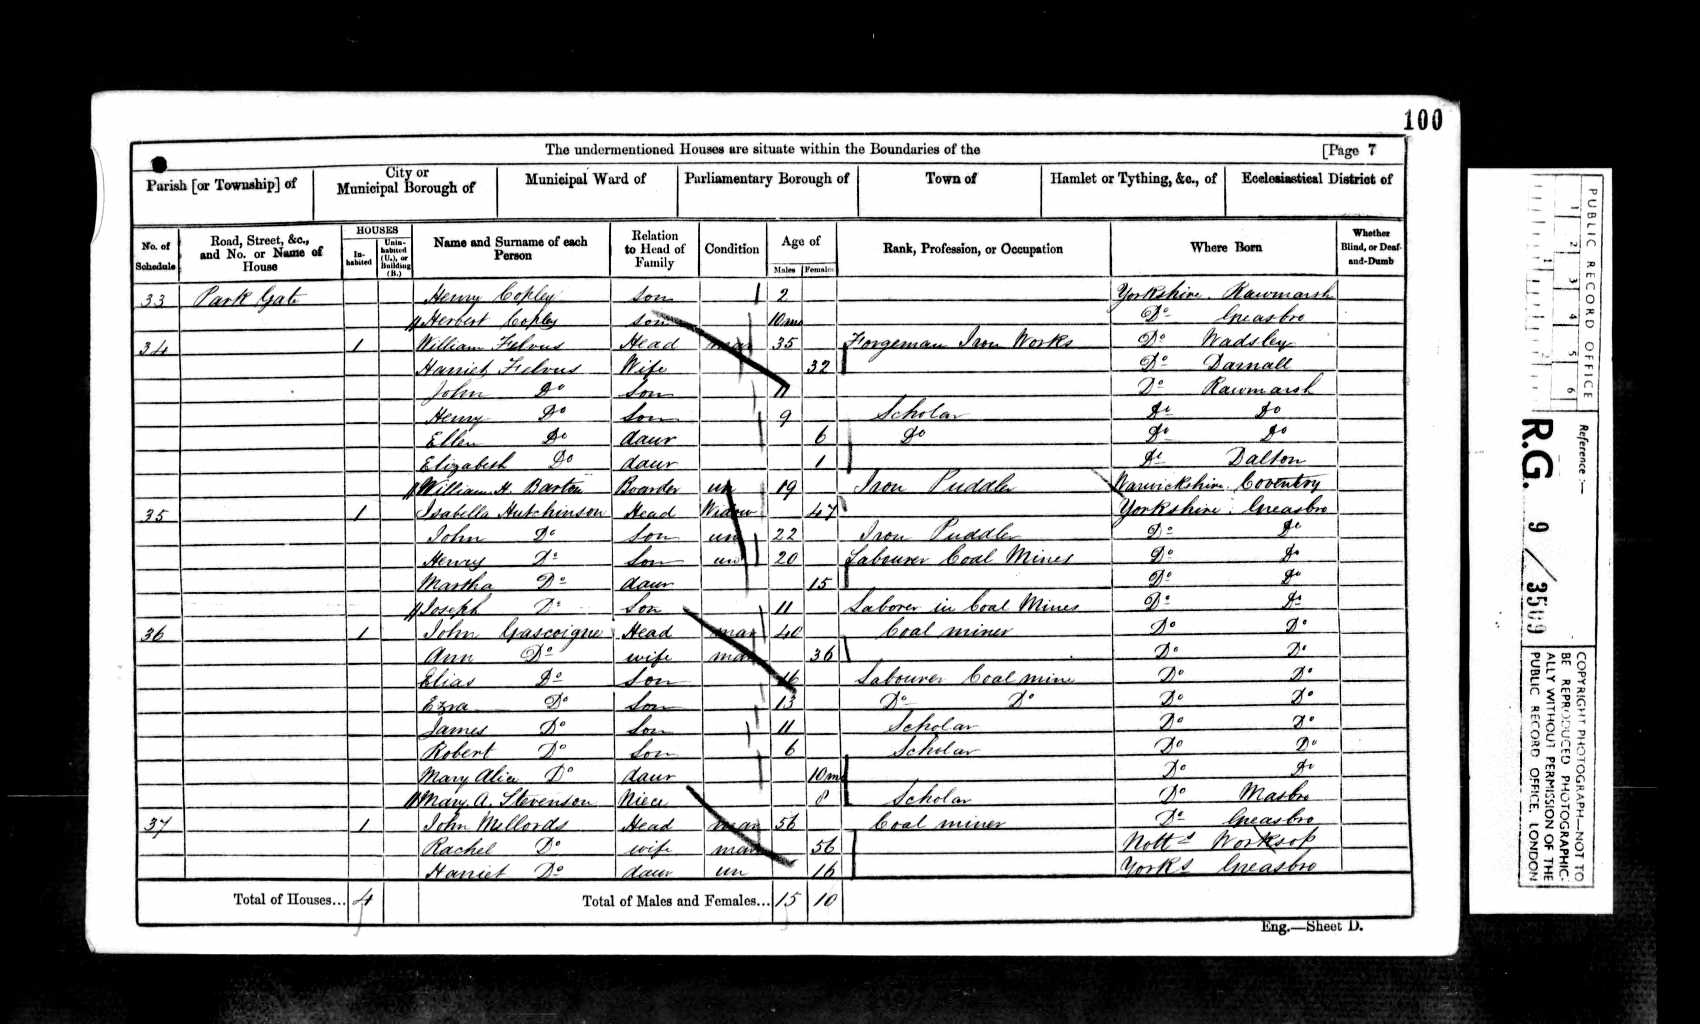 100
The undermentioned Houses are situate within the Boundaries of the [Page 7
Parish [or Township] of City or Municipal Borough of Municipal Ward of Parliamentary Borough of Town of Hamlet or Tything, &c., of Ecclesiastical District of
No. of Schedule Road, Street, &c., and No. or Name of House HOUSES In-habited Unin-habited (U.), or Building (B.) Name and Surname of each Person Relation to Head of Family Condition Age of Males Females Rank, Profession, or Occupation Where Born Whether Blind, or Deaf-and-Dumb
33 Park Gate Henry Copley Son 2 Yorkshire Rawmarsh
Herbert Copley Son 10 mo Do Greasbro
34 1 William Head mar 35 Forgeman Iron Works Do Wadsley
Harriet Wife 32 Do Darnall
John Do Son 11 Do Rawmarsh
Henry Do Son 9 Scholar Do Do
Ellen Do daur 6 Do Do Do
Elizabeth Do daur 1 Do Dalton
William H. Barton Boarder un 19 Iron Puddler Warwickshire Coventry
35 1 Isabella Hutchinson Head Widow 47 Yorkshire Greasbro
John Do Son un 22 Iron Puddler Do Do
Henry Do Son un 20 Labourer Coal Mines Do Do
Martha Do daur 15 Do Do
Joseph Do Son 11 Laborer in Coal Mines Do Do
36 1 John Gascoigne Head mar 40 Coal miner Do Do
Ann Do wife mar 36 Do Do
Elias Do Son 16 Labourer Coal mine Do Do
Ezra Do Son 13 Do Do Do Do
James Do Son 11 Scholar Do Do
Robert Do Son 6 Scholar Do Do
Mary Alice Do daur 10 mo Do Do
Mary A. Stevenson Niece 8 Scholar Do Masbro
37 1 John Mellords Head mar 56 Coal miner Do Greasbro
Rachel Do wife mar 56 Notts Worksop
Harriet Do daur un 16 Yorks Greasbro
Total of Houses... 4 Total of Males and Females... 15 10
Eng.—Sheet D.
PUBLIC RECORD OFFICE
1 2 3 4 5 6
Reference:—
R.G. 9 / 3509
COPYRIGHT PHOTOGRAPH—NOT TO
BE REPRODUCED PHOTOGRAPHIC-
ALLY WITHOUT PERMISSION OF THE
PUBLIC RECORD OFFICE, LONDON